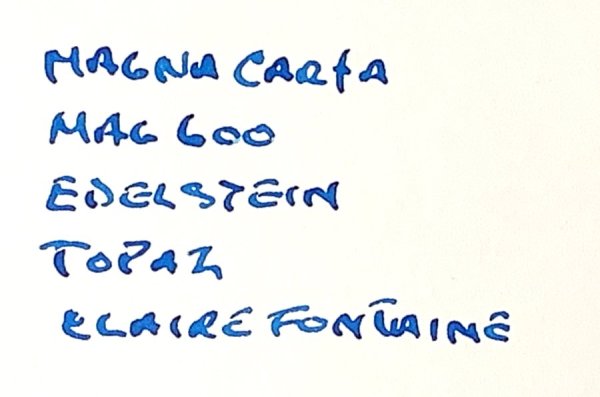 MAGNA CARTA
MAG 600
EDELSTEIN
TOPAZ
CLAIREFONTAINE